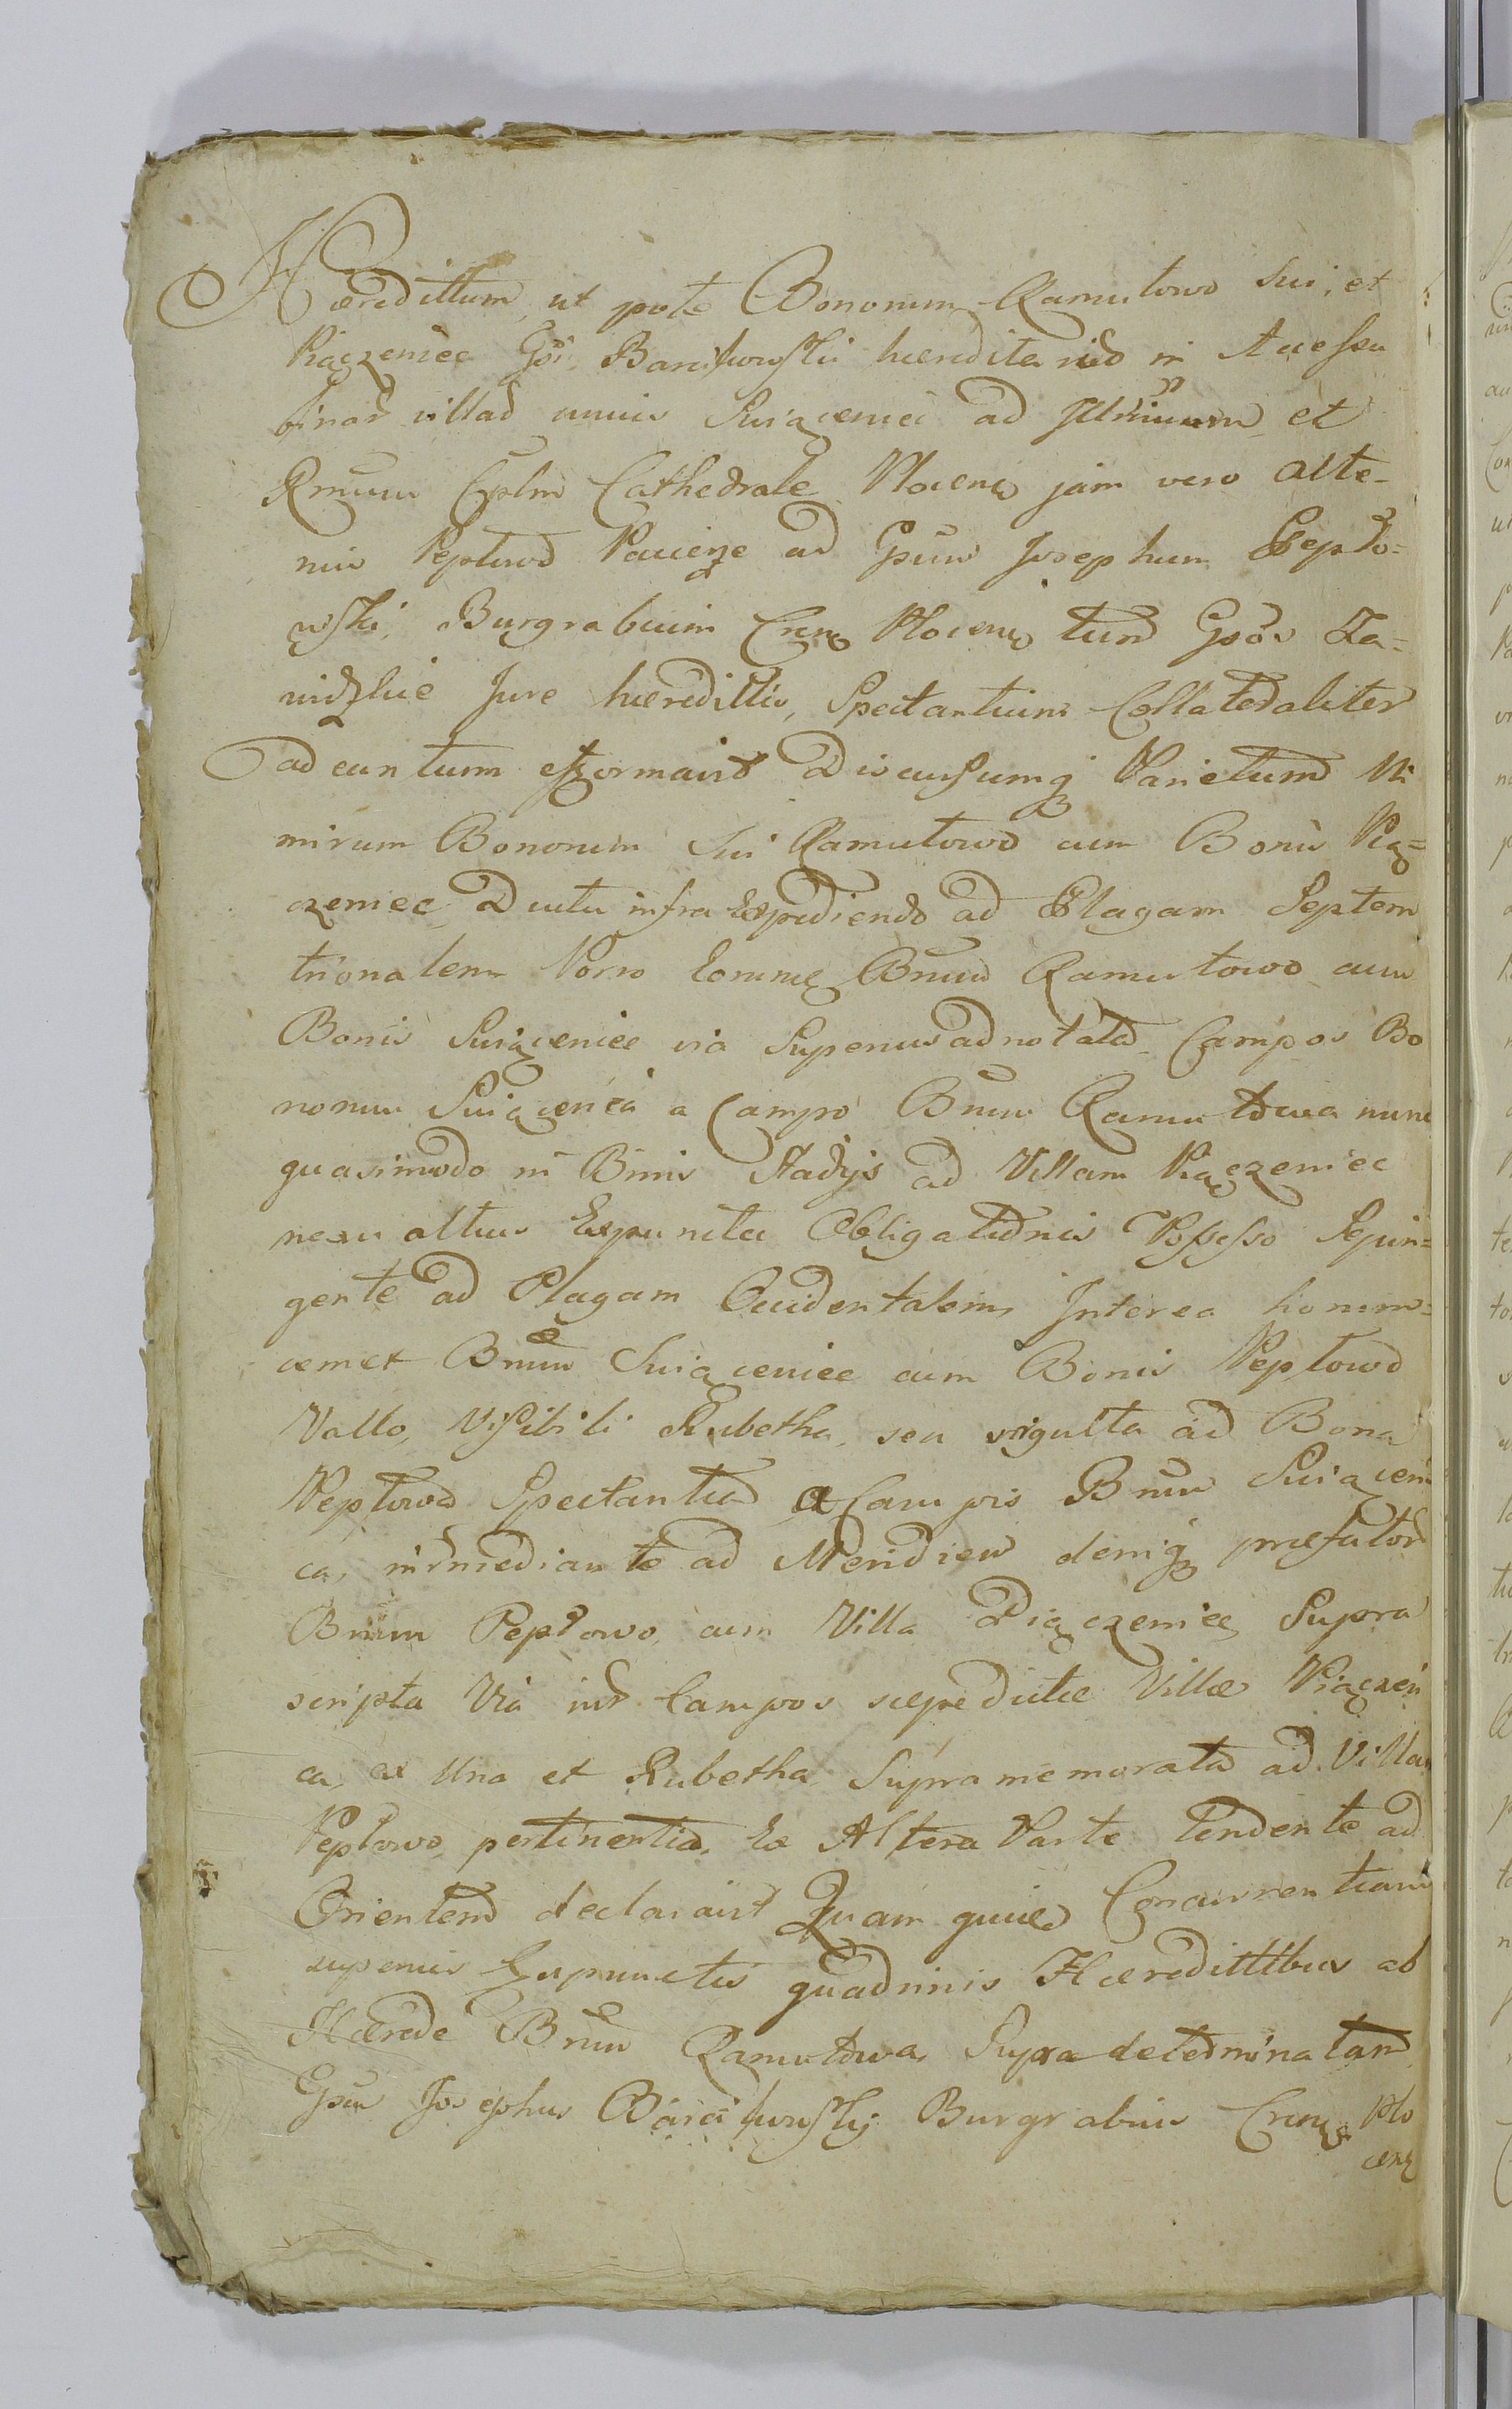 Hæredittum, ut pote Bonorum Ramutowo Sui, et
Piączeniec Gsi Barcikowskii hæreditario in Accessu
binar villar unius Swięcenici ad Illrmum et
Rmum Cplm Cathedrale Plocens jam vero alte-
rius Peplowo Pauciore ad Gsum Josephum Peplo=
wski, Burgrabium Crens Plocens tum Gsos Za=
nidzkie Jure hæredittio, Spectantium Collateraliter
adeuntum efformavit Discursumq Parietum Ni
mirum Bonorum Sui Ramutowo cum Bonis Pią=
czeniec Ductu infra Expediendo ad Plagam Septem
trionalem Porro Eorum Bnum Ramutowo cum
Bonis Swięceniec via Superius adnotata Campos Bo
norum Swięcenica a Campo Bnum Ramutowa nunc
quasimodo in Binis Stadijs ad Villam Piączeniec
nexu altius Expuncta Obligationis Possesso Sejun=
gente ad Plagam Occidentalem Interea horum=
cemet Bnum Swięceniec cum Bonis Peplowo
Vallo, Visibili Rubetha, seu virgulta ad Bona
Peplowo Spectantia a Campis Bnum Swięceni
ca, intrmediante ad Meridiem deniq præfator
Bnum Peplowo, cum Villa Piączeniec Supra
scripta Via intr Campos sæpedictæ Villæ Piączeni
ca, ex Una et Rubetha Supra memorata ad Villam
Peplowo, pertinentia, Ex Altera Parte tendente ad
Orientem declaravit Quam quid Concurrentiam
superius Expunctis quadrinis Hæredittibus ab
Hærede Bnum Ramutowa, Supra determinatam
Gsus Josephus Barcikowskj Burgrabius Crens Plo
cens